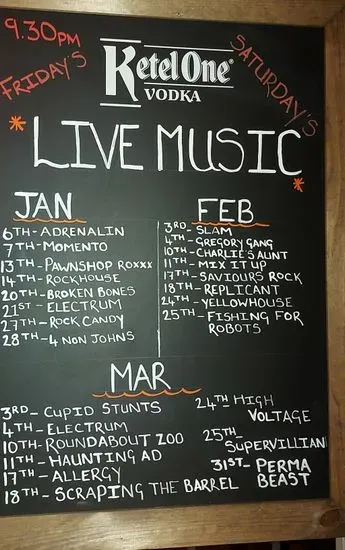 9.30PM
FRIDAY'S
SATURDAY'S
Ketel One®
VODKA
* LIVE MUSIC *
JAN
6TH - ADRENALIN
7TH - MOMENTO
13TH - PAWNSHOP ROXXX
14TH - ROCKHOUSE
20TH - BROKEN BONES
21ST - ELECTRUM
27TH - ROCK CANDY
28TH - 4 NON JOHNS
FEB
3RD - SLAM
4TH - GREGORY GANG
10TH - CHARLIE'S AUNT
11TH - MIX IT UP
17TH - SAVIOURS ROCK
18TH - REPLICANT
24TH - YELLOWHOUSE
25TH - FISHING FOR
ROBOTS
MAR
3RD - CUPID STUNTS
4TH - ELECTRUM
10TH - ROUNDABOUT ZOO
11TH - HAUNTING AD
17TH - ALLERGY
18TH - SCRAPING THE BARREL
24TH HIGH
VOLTAGE
25TH -
SUPERVILLIAN
31ST - PERMA
BEAST